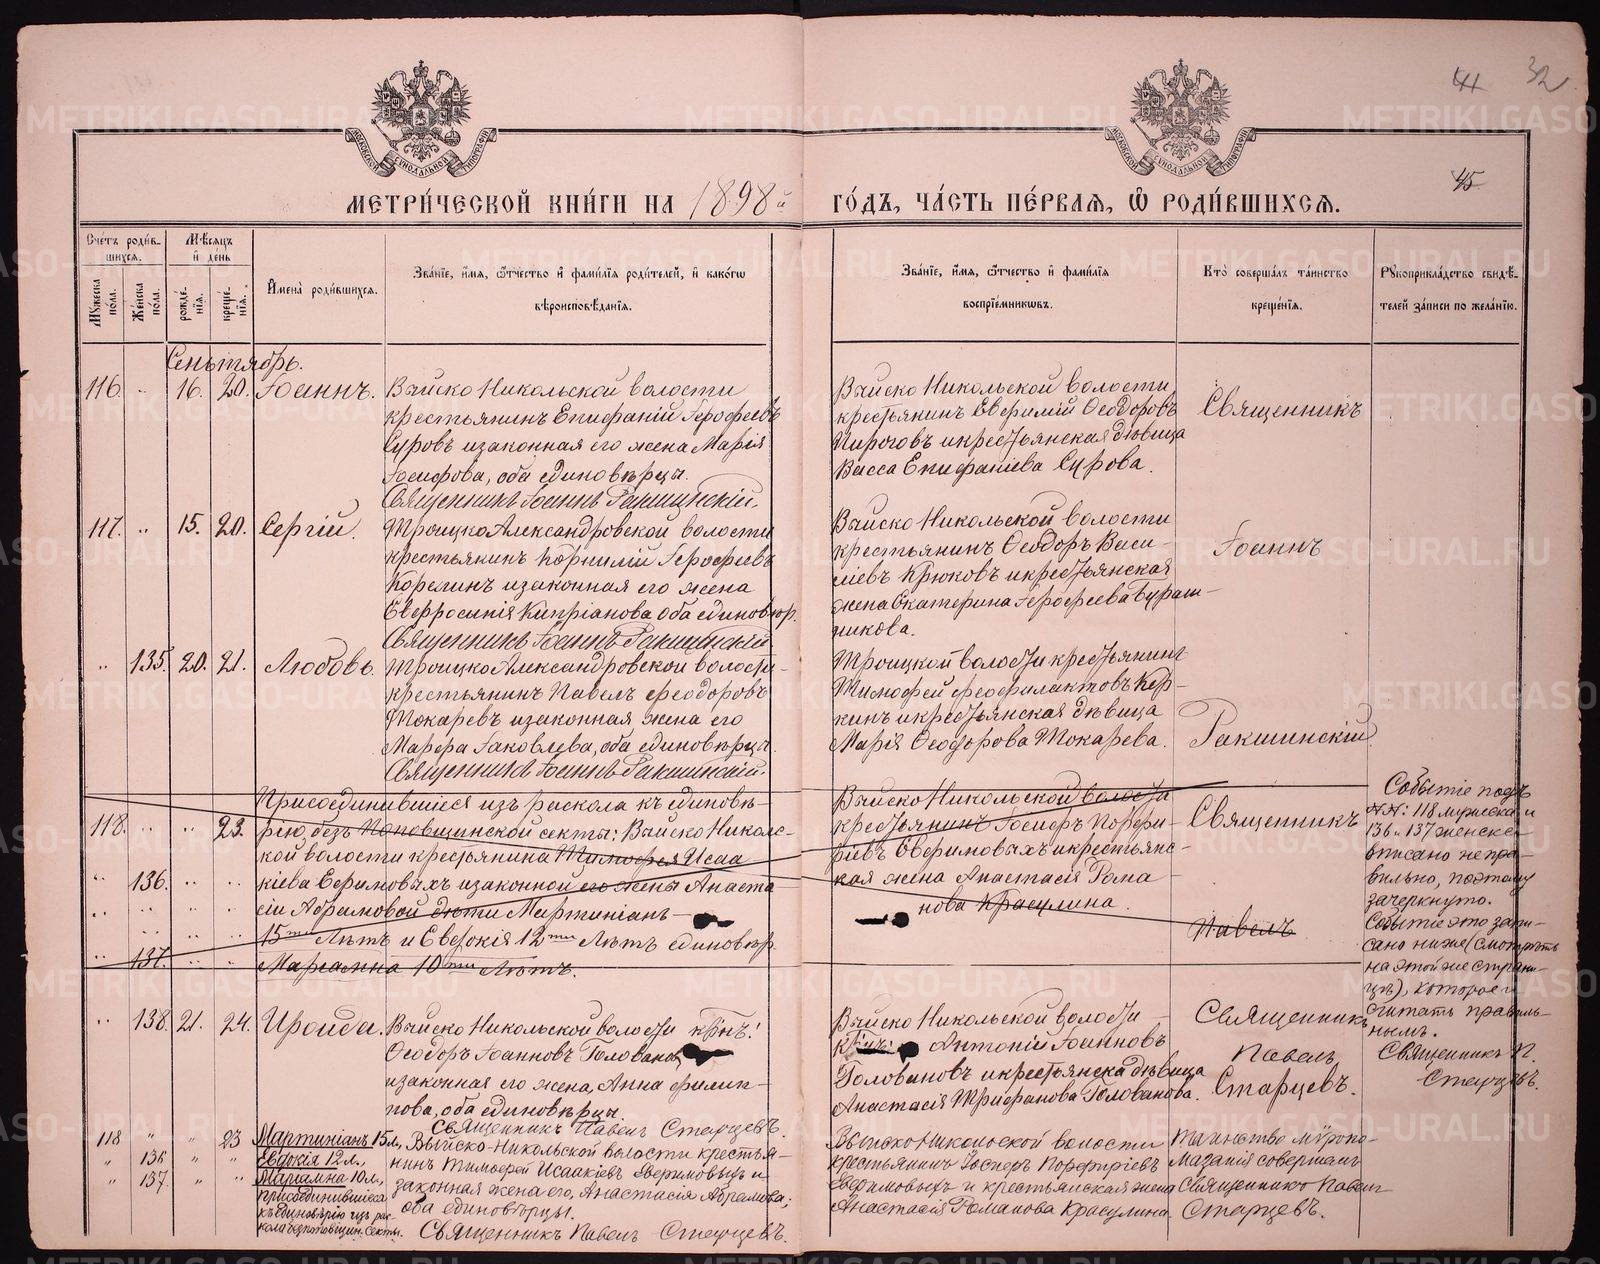 41 32
45
МЕТРИ́ЧЕСКОЙ КНИ́ГИ НА 1898й ГО́ДЪ, ЧА́СТЬ ПЕ́РВАЯ, Ѽ РОДИ́ВШИХСЯ.
Сче́тъ роди́вшихся.
Му́жеска по́ла.
Же́нска по́ла.
Мѣ́сяцъ и́ де́нь
рожде́нїя.
креще́нїя.
И́мена̀ роди́вшихся.
Зва́нїе, и́мя, ѻ́тчество и́ фами́лїя роди́телей, и́ како́гѡ
вѣроисповѣ́данїя.
Зва́нїе, и́мя, ѻ́тчество и́ фами́лїя
воспрїе́мникѡвъ.
Кто̀ соверша́лъ та́инство
креще́нїя.
Рꙋкоприкла́дство свидѣ́телей за́писи по жела́нїю.
Сентябрь.
116. " 16. 20. Іоаннъ.
Выйско Никольской волости
крестьянинъ Епифаній Ерофеевъ
Суровъ и законная его жена Марія
Іосифова, оба единовѣрцы.
Священникъ Іоаннъ Ракшинскій.
Выйско Никольской волости
крестьянинъ Евфимій Ѳеодоровъ
Пироговъ и крестьянская дѣвица
Васса Епифаніева Сурова.
Священникъ
117. " 15. 20. Сергій.
Троицко Александровской волости
крестьянинъ Корнилій Ерофеевъ
Корелинъ и законная его жена
Евфросинія Кипріанова, оба единовѣр.
Священникъ Іоаннъ Ракшинскій
Выйско Никольской волости
крестьянинъ Ѳеодоръ Васи-
ліевъ Крюковъ и крестьянская
жена Екатерина Ерофеева Бураш-
никова.
Іоаннъ
" 135. 20. 21. Любовь.
Троицко Александровской волости
крестьянинъ Павелъ Феодоровъ
Токаревъ и законная жена его
Марфа Іаковлева, оба единовѣрцы.
Священникъ Іоаннъ Ракшинскій.
Троицкой волости крестьянинъ
Тимофей Феофилактовъ Кор-
кинъ и крестьянская дѣвица
Марія Ѳеодорова Токарева.
Ракшинскій
118. " " 23.
" 136. " "
" 137. " "
Присоединившіеся изъ раскола къ единовѣ-
рію, безъ Поповщинской секты: Выйско Николь-
ской волости крестьянина Тимофея Исаа
кіева Ефимовыхъ и законной его жены Анаста-
сіи Абрамовой дѣти Мартиніанъ
15ти Лѣтъ и Евдокія 12ти Лѣтъ единовѣр.
Маріамна 10ти Лѣтъ.
Выйско Никольской волости
крестьянинъ Іосифъ Порфи-
ріевъ Евфимовыхъ и крестьянс-
кая жена Анастасія Рома
нова Красулина.
Священникъ
Павелъ
Событіе подъ
№№: 118 мужска и
136 и 137 женска
вписано непра-
вильно, поэтому
зачеркнуто.
Событіе это запи-
сано ниже (смотрѣть
на этой же страни-
цѣ), которое и
считать правиль-
нымъ.
Священникъ П.
Старцевъ.
" 138. 21. 24. Ираида.
Выйско Никольской волости кр‑нъ:
Ѳеодоръ Іоанновъ Головановъ
и законная его жена, Анна Филип-
пова, оба единовѣрцы.
Священникъ Павелъ Старцевъ.
Выйско Никольской волости
Антоній Іоанновъ
Головановъ и крестьянска дѣвица
Анастасія Трифанова Голованова.
Священникъ
Павелъ
Старцевъ.
118 " " 23
" 136 " "
" 137. " "
Мартиніанъ 15 л.,
Евдокія 12 л.,
Маріамна 10 л.,
присоединившіеся
къ единовѣрію изъ рас-
кола безпоповщин. секты.
Выйско-Никольской волости крестья-
нинъ Тимофей Исаакіевъ Евфимовыхъ и
законная жена его, Анастасія Абрамова;
оба единовѣрцы.
Священникъ Павелъ Старцевъ.
Выйско Никольской волости
крестьянинъ Іосифъ Порфиріевъ
Евфимовыхъ и крестьянская жена
Анастасія Романова Красулина.
Таинство мѵропо-
мазанія совершалъ
Священникъ Павелъ
Старцевъ.
METRIKI.GASO-URAL.RU